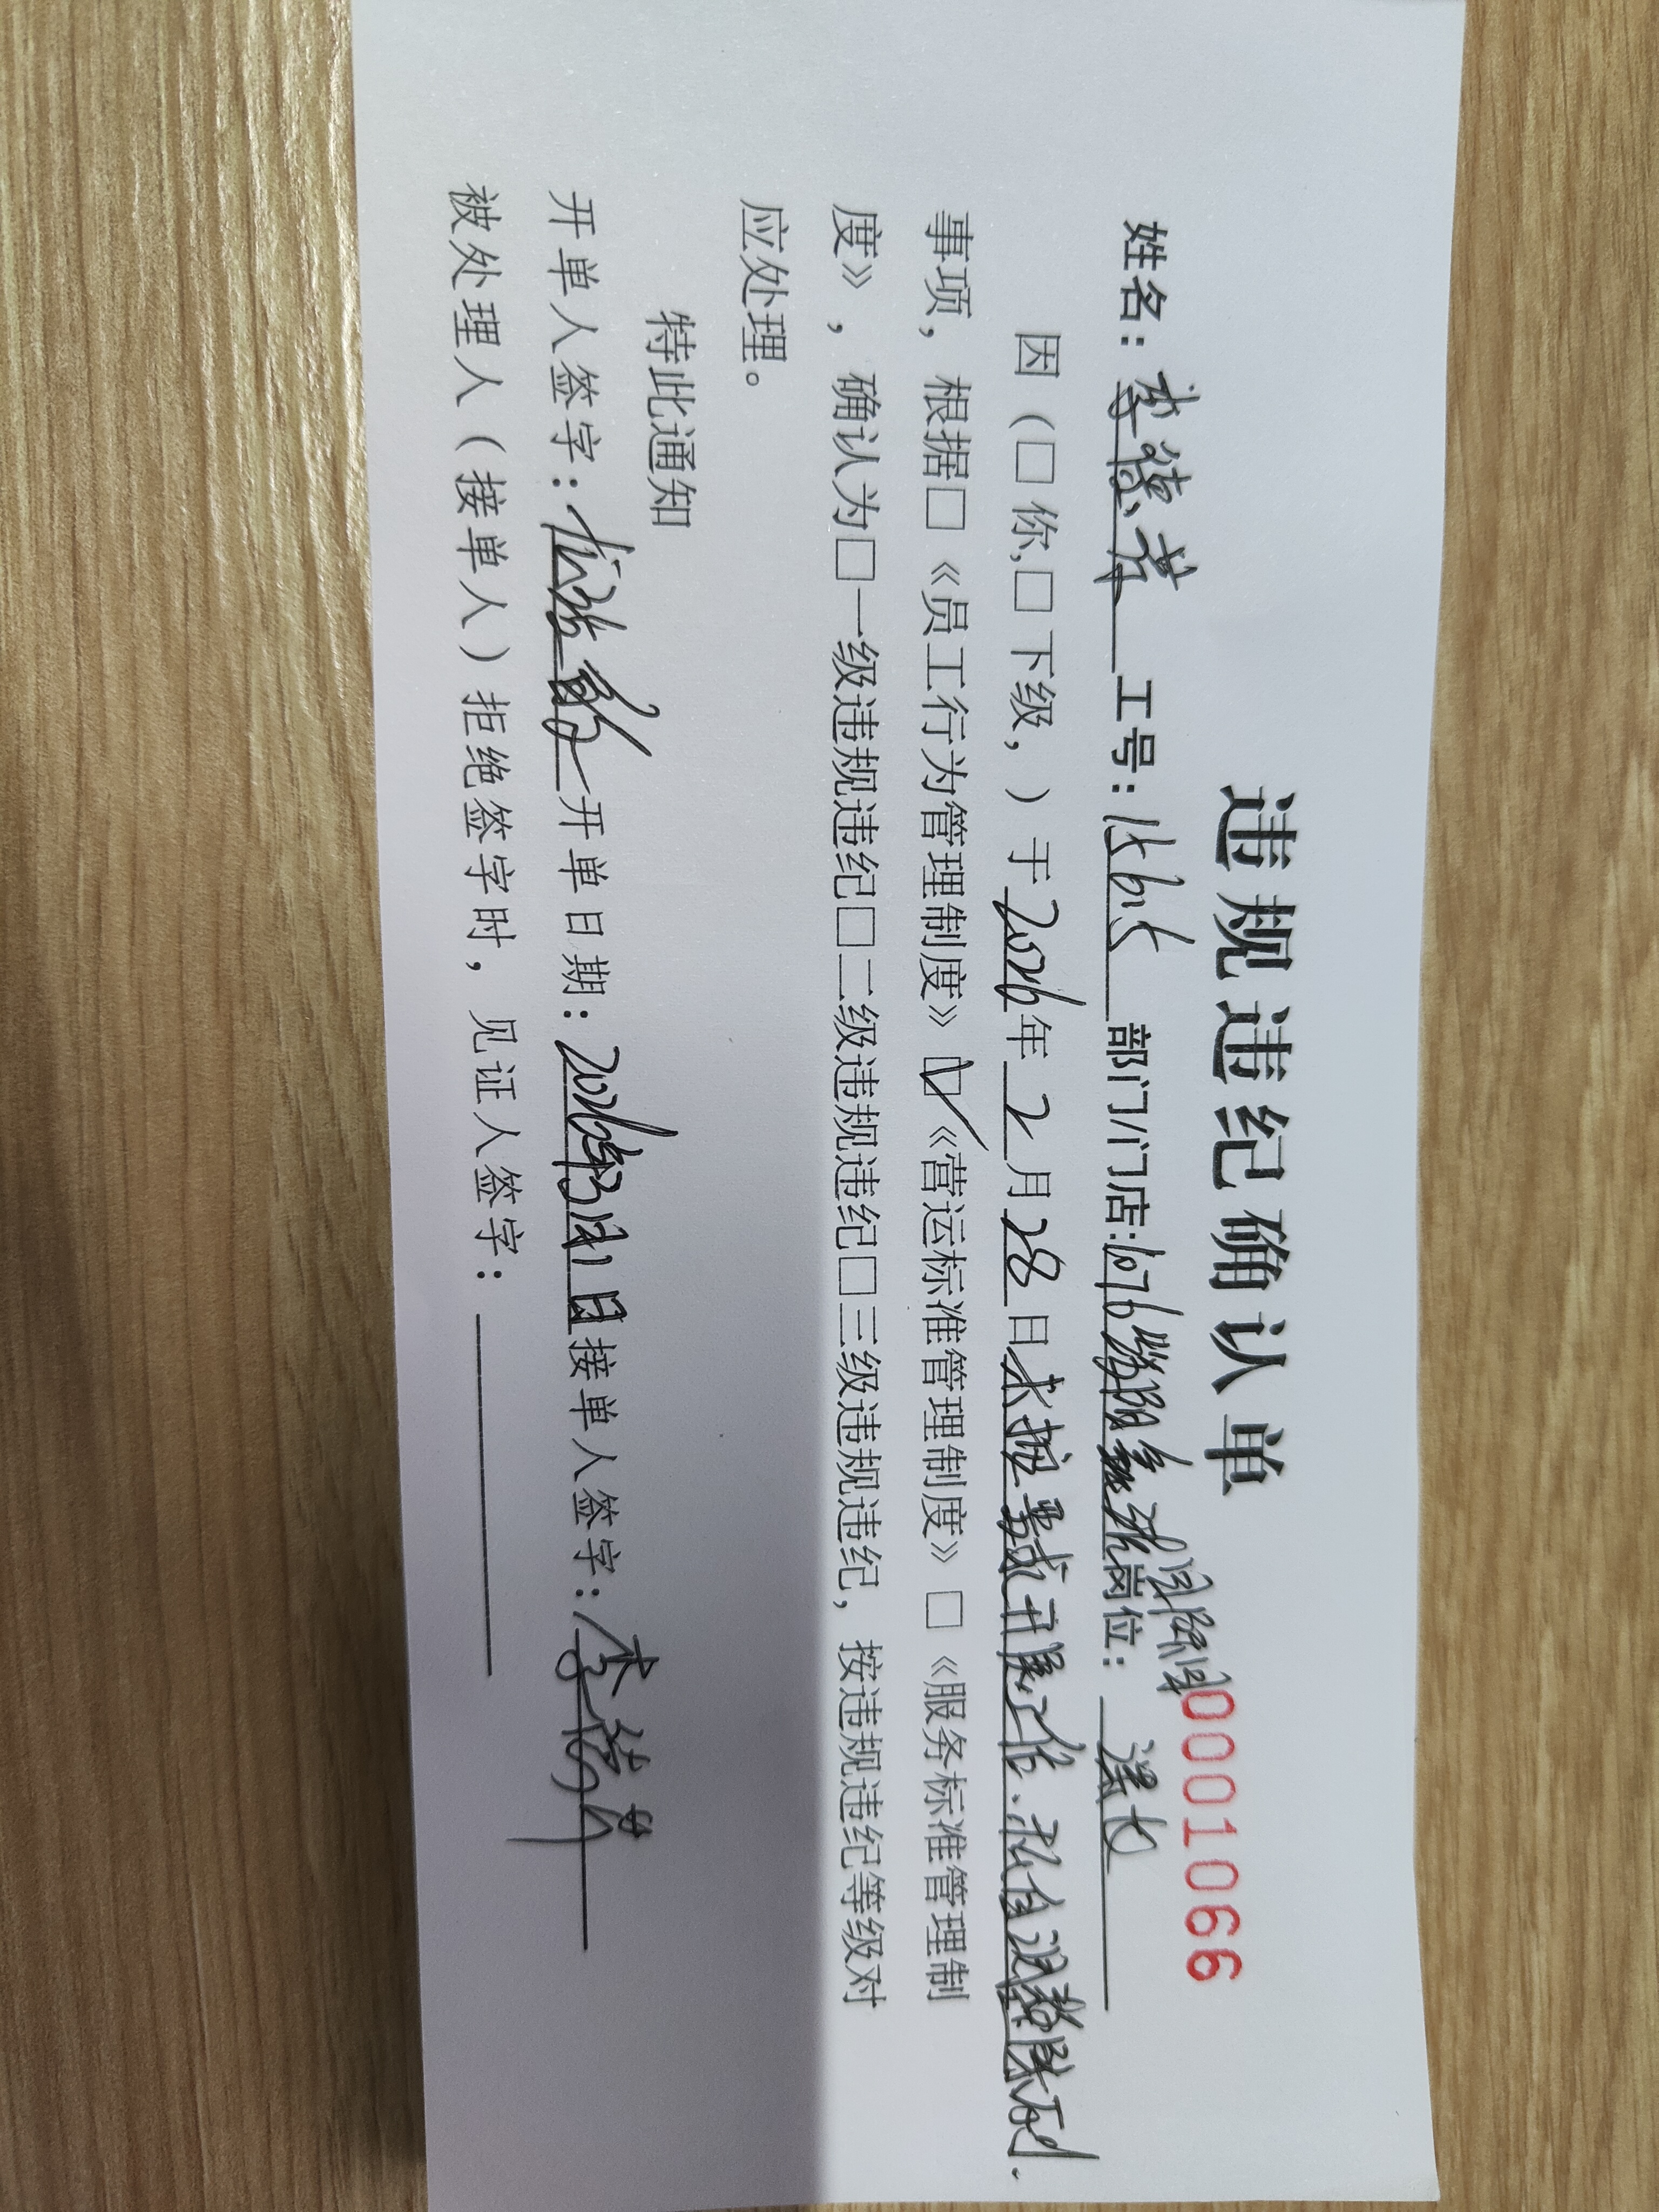 违规违纪确认单
0001066
姓名：李德芳 工号： 部门/门店:1076 岗位：
因（□你,□下级，）于2026年2月28日未按要求开展工作.私自调整陈列.
事项，根据□《员工行为管理制度》☑《营运标准管理制度》□《服务标准管理制
度》，确认为□一级违规违纪□二级违规违纪□三级违规违纪，按违规违纪等级对
应处理。
特此通知
开单人签字： 开单日期：2026年3月1日接单人签字：李德芳
被处理人（接单人）拒绝签字时，见证人签字：